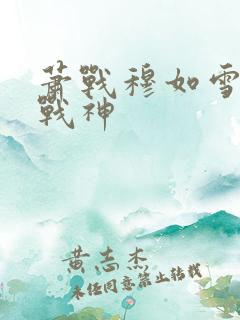 萧戰穆如雪
戰神
黄志杰
未经同意禁止转载